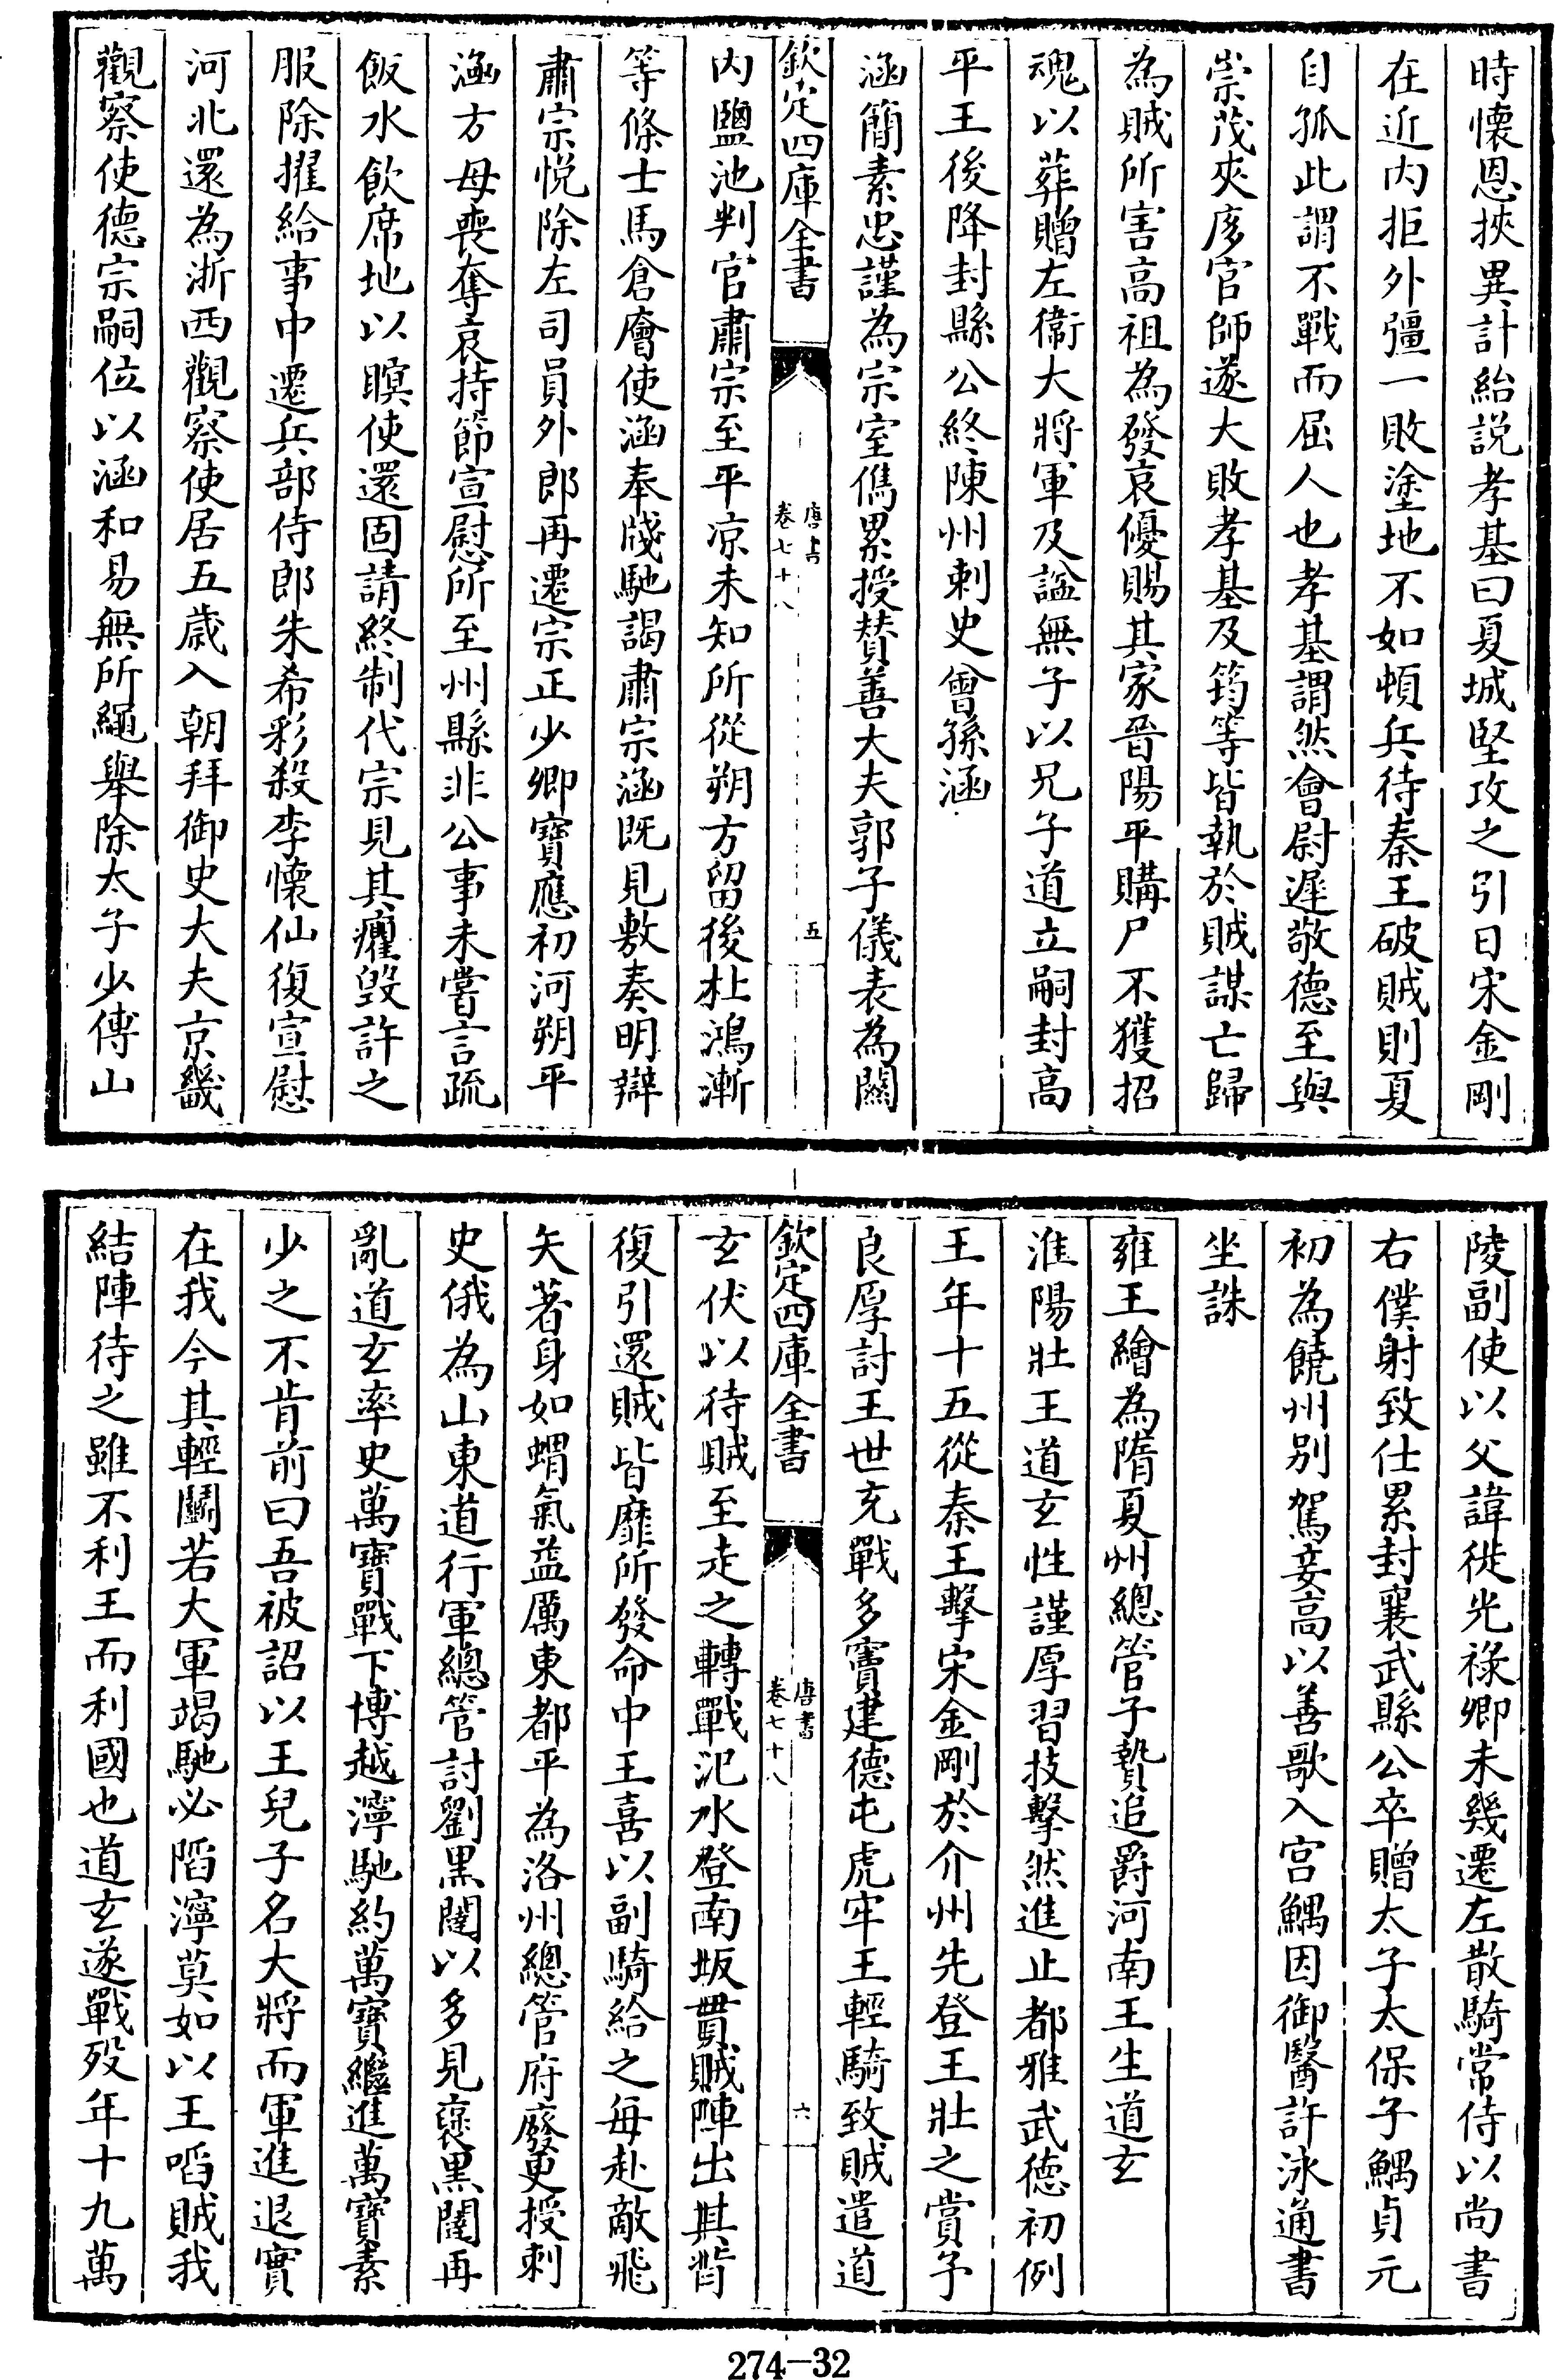 時懷恩挾異計紿説孝基曰夏城堅攻之引日宋金剛
在近内拒外彊一敗塗地不如頓兵待秦王破賊則夏
自孤此謂不戰而屈人也孝基謂然會尉遲敬德至與
崇茂夾彦官師遂大敗孝基及筠等皆執於賊謀亡歸
為賊所害高祖為發哀優賜其家晉陽平購尸不獲招
魂以葬贈左衞大將軍及諡無子以兄子道立嗣封高
平王後降封縣公終陳州刺史曾孫涵
涵簡素忠謹為宗室儁累授贊善大夫郭子儀表為關
欽定四庫全書
唐書
卷七十八
五
内鹽池判官肅宗至平凉未知所從朔方留後杜鴻漸
等條士馬倉廥使涵奉牋馳謁肅宗涵既見敷奏明辯
肅宗悦除左司員外郎再遷宗正少卿寶應初河朔平
涵方母喪奪哀持節宣慰所至州縣非公事未嘗言疏
飯水飲席地以瞑使還固請終制代宗見其癯毁許之
服除擢給事中遷兵部侍郎朱希彩殺李懷仙復宣慰
河北還為浙西觀察使居五歲入朝拜御史大夫京畿
觀察使德宗嗣位以涵和易無所繩舉除太子少傅山
陵副使以父諱徙光祿卿未幾遷左散騎常侍以尚書
右僕射致仕累封襄武縣公卒贈太子太保子鰅貞元
初為饒州别駕妾高以善歌入宫鰅因御醫許泳通書
坐誅
雍王繪為隋夏州總管子贄追爵河南王生道玄
淮陽壯王道玄性謹厚習技擊然進止都雅武德初例
王年十五從秦王擊宋金剛於介州先登王壯之賞予
良厚討王世充戰多竇建德屯虎牢王輕騎致賊遣道
欽定四庫全書
唐書
卷七十八
六
玄伏以待賊至走之轉戰汜水登南坂貫賊陣出其背
復引還賊皆靡所發命中王喜以副騎給之每赴敵飛
矢著身如蝟氣益厲東都平為洛州總管府廢更授刺
史俄為山東道行軍總管討劉黑闥以多見褒黑闥再
亂道玄率史萬寶戰下博越濘馳約萬寶繼進萬寶素
少之不肯前曰吾被詔以王兒子名大將而軍進退實
在我今其輕鬭若大軍竭馳必陷濘莫如以王啗賊我
結陣待之雖不利王而利國也道玄遂戰殁年十九萬
274-32